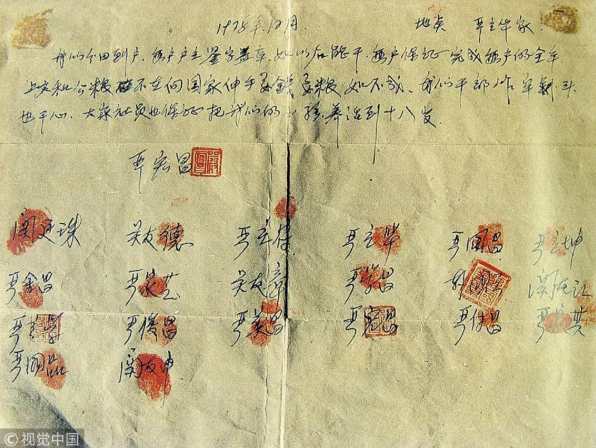 1978年12月. 地点 严立华家
我们分田到户,每户户主签字盖章,如以后能干,每户保证完成每户的全年
上交和公粮 不在向国家伸手要钱要粮,如不成,我们干部作牢刹头
也干心,大家社员也保证把我们的小孩养活到十八岁。
严宏昌
关廷珠 关友德 严立符 严立华 严国昌 严立坤
严金昌 严家芝 关友章 严学昌 关友江
严立学 严俊昌 严美昌 严宏昌 严付昌 严家其
严国品 关友申
©视觉中国